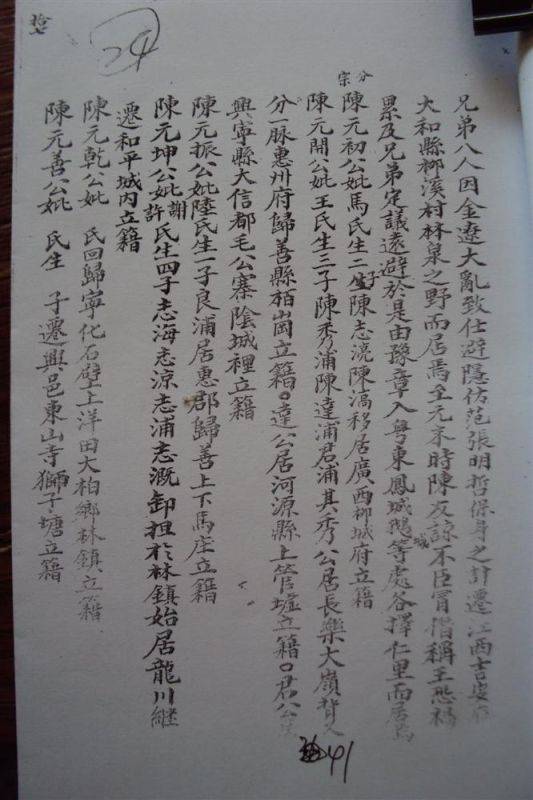 拾七
24
兄弟八人因金遼大亂致仕避隱仿范張明哲保身之計遷江西吉安府
大和縣柳溪村林泉之野而居焉至元末時陳友諒不臣冒僭稱王恐禍
累及兄弟定議遂避於是由豫章入粵東鳳城鵝城等處各擇仁里而居焉
分宗
陳元初公妣馬氏生二子陳志浣陳滈移居廣西柳城府立籍
陳元開公妣王氏生三子陳秀浦陳達浦君浦其秀公居長樂大嶺背又
分一脉惠州府歸善縣栢崗立籍○達公居河源縣上管墟立籍○君公
興寧縣大信都毛公寨陰城裡立籍
陳元振公妣陸氏生一子良浦居惠郡歸善上下馬庄立籍
陳元坤公妣謝許氏生四子志海志凉志浦志溉卸担於林鎮始居龍川継
遷和平城内立籍
陳元乾公妣 氏回歸寧化石壁上洋田大柏鄉林鎮立籍
陳元善公妣 氏生 子遷興邑東山寺獅子塘立籍
41